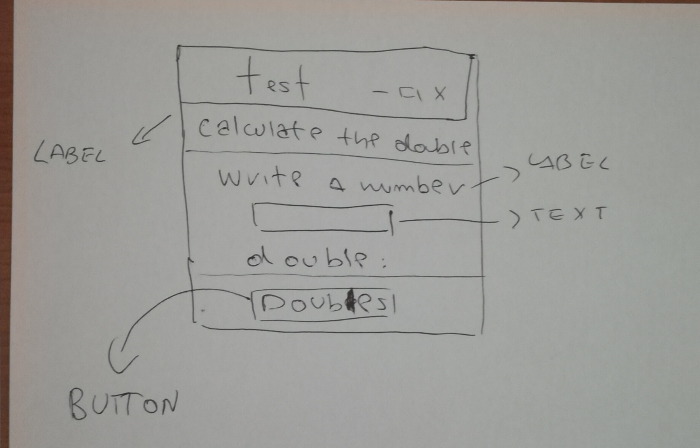 test - □ x
calculate the dable
LABEL
write a number
LABEL
TEXT
double:
Doubles
BUTTON